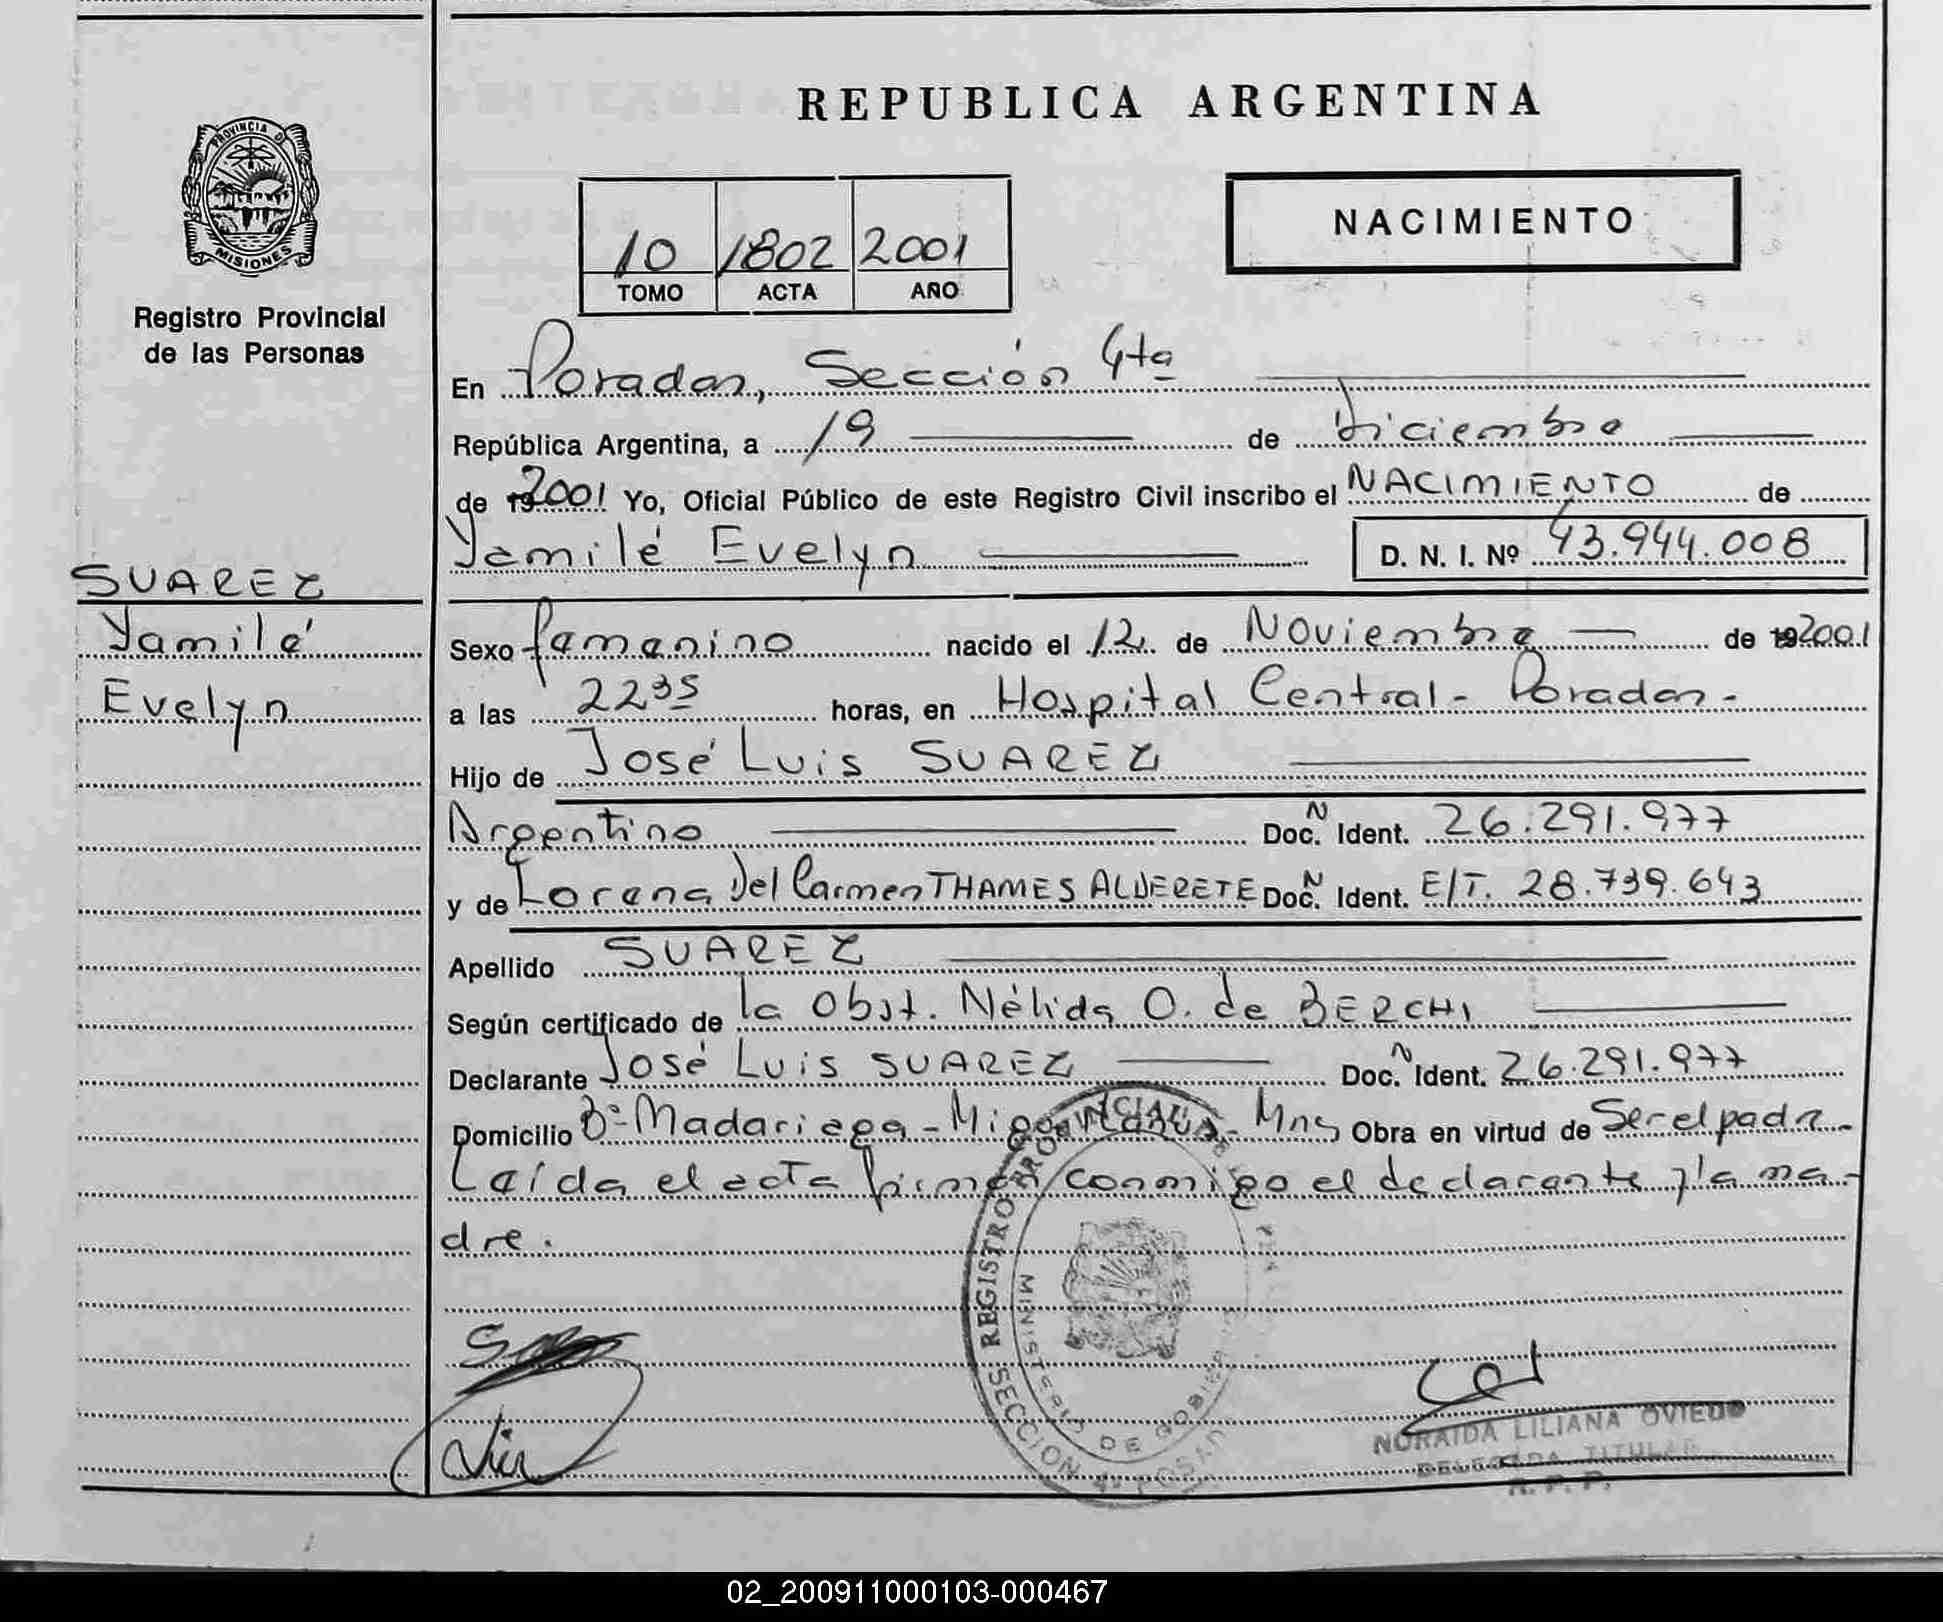 REPUBLICA ARGENTINA
PROVINCIA DE
MISIONES
Registro Provincial
de las Personas
NACIMIENTO
10 1802 2001
TOMO ACTA AÑO
En Posadas, Sección 4ta
República Argentina, a 19 de Diciembre
de 19 2001 Yo, Oficial Público de este Registro Civil inscribo el NACIMIENTO de
Yamilé Evelyn D. N. I. Nº 43.944.008
SUAREZ
Yamilé
Evelyn
Sexo femenino nacido el 12 de Noviembre de 19 2001
a las 22 35 horas, en Hospital Central - Posadas -
Hijo de José Luis SUAREZ
Argentino Doc. N Ident. 26.291.977
y de Lorena Del Carmen THAMES ALDERETE Doc. N Ident. E/T. 28.739.643
Apellido SUAREZ
Según certificado de la Obst. Nélida O. de BERCHI
Declarante José Luis SUAREZ Doc. N Ident. 26.291.977
Domicilio Bº Madariaga - Mns Obra en virtud de Ser el padre
Leída el acta firman conmigo el declarante y la ma-
dre.
REGISTRO PROVINCIAL
SECCION 4ª POSADAS
MINISTERIO DE GOBIERNO
NORAIDA LILIANA OVIEDO
DELEGADA TITULAR
R. P. P.
02_200911000103-000467